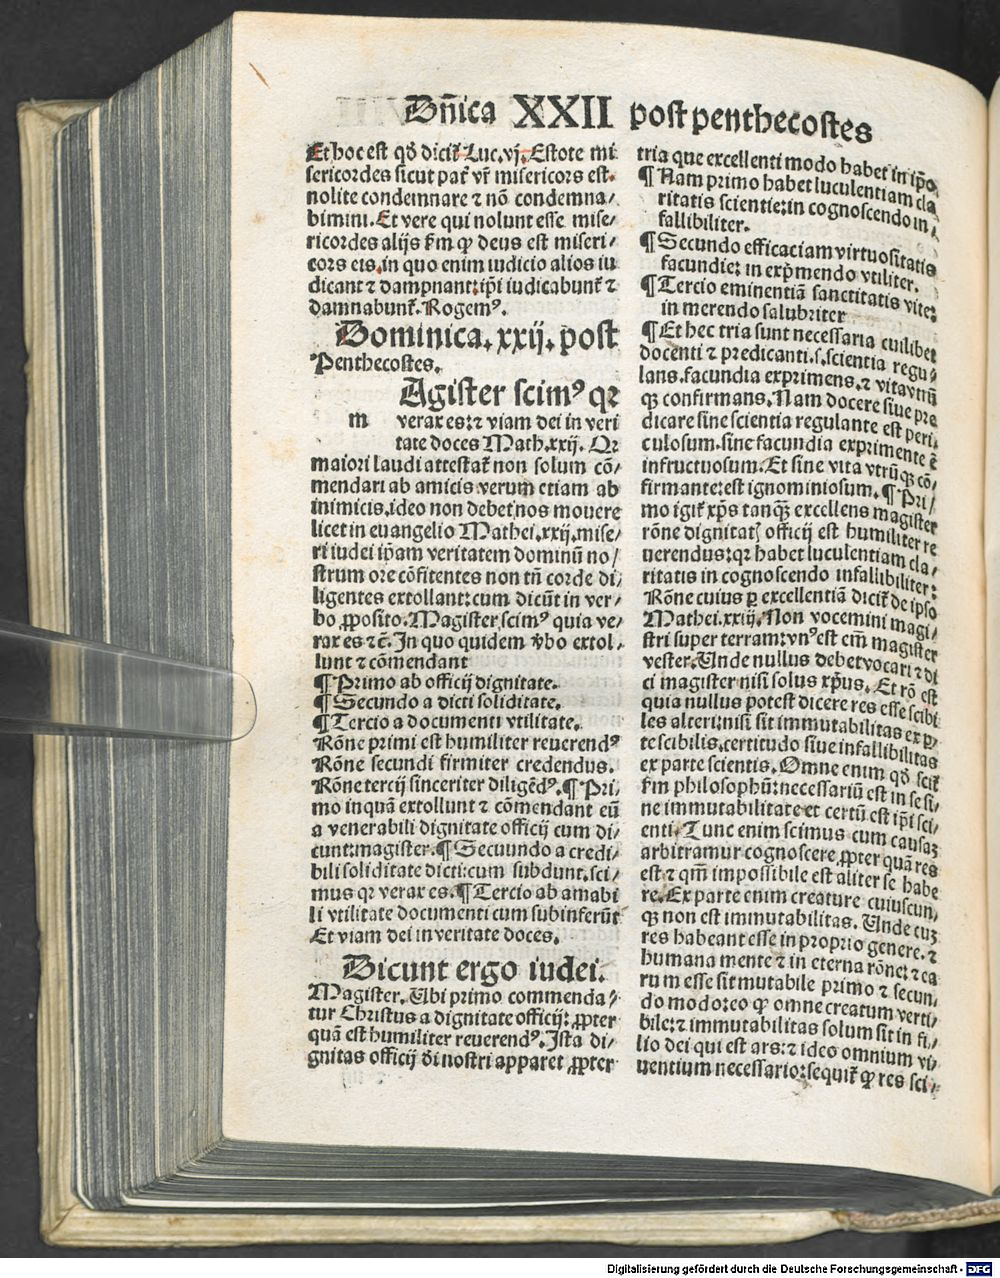 Dn̄ica XXII post penthecostes
Et hoc est qd̄ dicit᷑ Luc.vj. Estote mi
sericordes sicut pat᷑ vr̄ misericors est.
nolite condemnare ⁊ nō condemna/
bimini. Et vere qui nolunt esse mise/
ricordes alijs s̄m ꝙ deus est miseri/
cors eis, in quo enim iudicio alios iu
dicant ⁊ dampnant: ip̄i iudicabunt᷑ ⁊
damnabunt᷑. Rogemꝰ.
Dominica. xxij. post
Penthecostes.
Agister scimꝰ qꝛ
m verax es: ⁊ viam dei in veri
tate doces Math.xxij. Qꝛ
maiori laudi attestat᷑ non solum cō/
mendari ab amicis verum etiam ab
inimicis, ideo non debet nos mouere
licet in euangelio Mathei.xxij. mise/
ri iudei ip̄am veritatem dominū no/
strum ore cōfitentes non tn̄ corde di/
ligentes extollant: cum dicūt in ver/
bo ꝓposito. Magister scimꝰ quia ve/
rax es ⁊c̄. In quo quidem v̄bo extol/
lunt ⁊ cōmendant
¶ Primo ab officij dignitate.
¶ Secundo a dicti soliditate.
¶ Tercio a documenti vtilitate.
Rōne primi est humiliter reuerendꝰ
Rōne secundi firmiter credendus.
Rōne tercij sinceriter diligēdꝰ. ¶ Pri/
mo inquā extollunt ⁊ cōmendant eū
a venerabili dignitate officij cum di/
cunt: magister. ¶ Secuundo a credi/
bili soliditate dicti: cum subdunt. sci/
mus qꝛ verax es. ¶ Tercio ab amabi
li vtilitate documenti cum subinferūt
Et viam dei in veritate doces.
Dicunt ergo iudei.
Magister. Ubi primo commenda/
tur Christus a dignitate officij: ꝓpter
quā est humiliter reuerendꝰ. Ista di/
gnitas officij dn̄i nostri apparet ꝓpter
tria que excellenti modo habet in ip̄o.
¶ Nam primo habet luculentiam cla
ritatis scientie: in cognoscendo in/
fallibiliter.
¶ Secundo efficaciam virtuositatis
facundie: in exp̄mendo vtiliter.
¶ Tercio eminentiā sanctitatis vite:
in merendo salubriter
¶ Et hec tria sunt necessaria cuilibet
docenti ⁊ predicanti. s. scientia regu/
lans. facundia exprimens. ⁊ vita vtrū
qꝫ confirmans. Nam docere siue pre
dicare sine scientia regulante est peri/
culosum. sine facundia exprimente ē
infructuosum. Et sine vita vtrūqꝫ cō/
firmante: est ignominiosum. ¶ Pri/
mo igit᷑ xp̄s tanqꝫ excellens magister
rōne dignitatꝭ officij est humiliter re
uerendus: qꝛ habet luculentiam cla/
ritatis in cognoscendo infallibiliter:
Rōne cuius ꝑ excellentiā dicit᷑ de ipso
Mathei.xxiij. Non vocemini magi/
stri super terram: vnꝰ est em̄ magister
vester. Unde nullus debet vocari ⁊ di
ci magister nisi solus xp̄us. Et rō est
quia nullus potest dicere res esse scibi
les alteri: nisi sit immutabilitas ex p̱/
te scibilis. certitudo siue infallibilitas
ex parte scientis. Omne enim qd̄ scit᷑
s̄m philosophū: necessariū est in se si/
ne immutabilitate et certū est ip̄i sci/
enti. Tunc enim scimus cum causaꝫ
arbitramur cognoscere, ꝓpter quā res
est ⁊ qm̄ impossibile est aliter se habe
re. Ex parte enim creature cuiuscun/
qꝫ non est immutabilitas. Unde cuꝫ
res habeant esse in proprio genere. ⁊
humana mente ⁊ in eterna rōne: ⁊ ea
rum esse sit mutabile primo ⁊ secun/
do modo: eo ꝙ omne creatum verti/
bile: ⁊ immutabilitas solum sit in fi/
lio dei qui est ars: ⁊ ideo omnium vi/
uentium necessario: sequit᷑ ꝙ res sci/
Digitalisierung gefördert durch die Deutsche Forschungsgemeinschaft - DFG